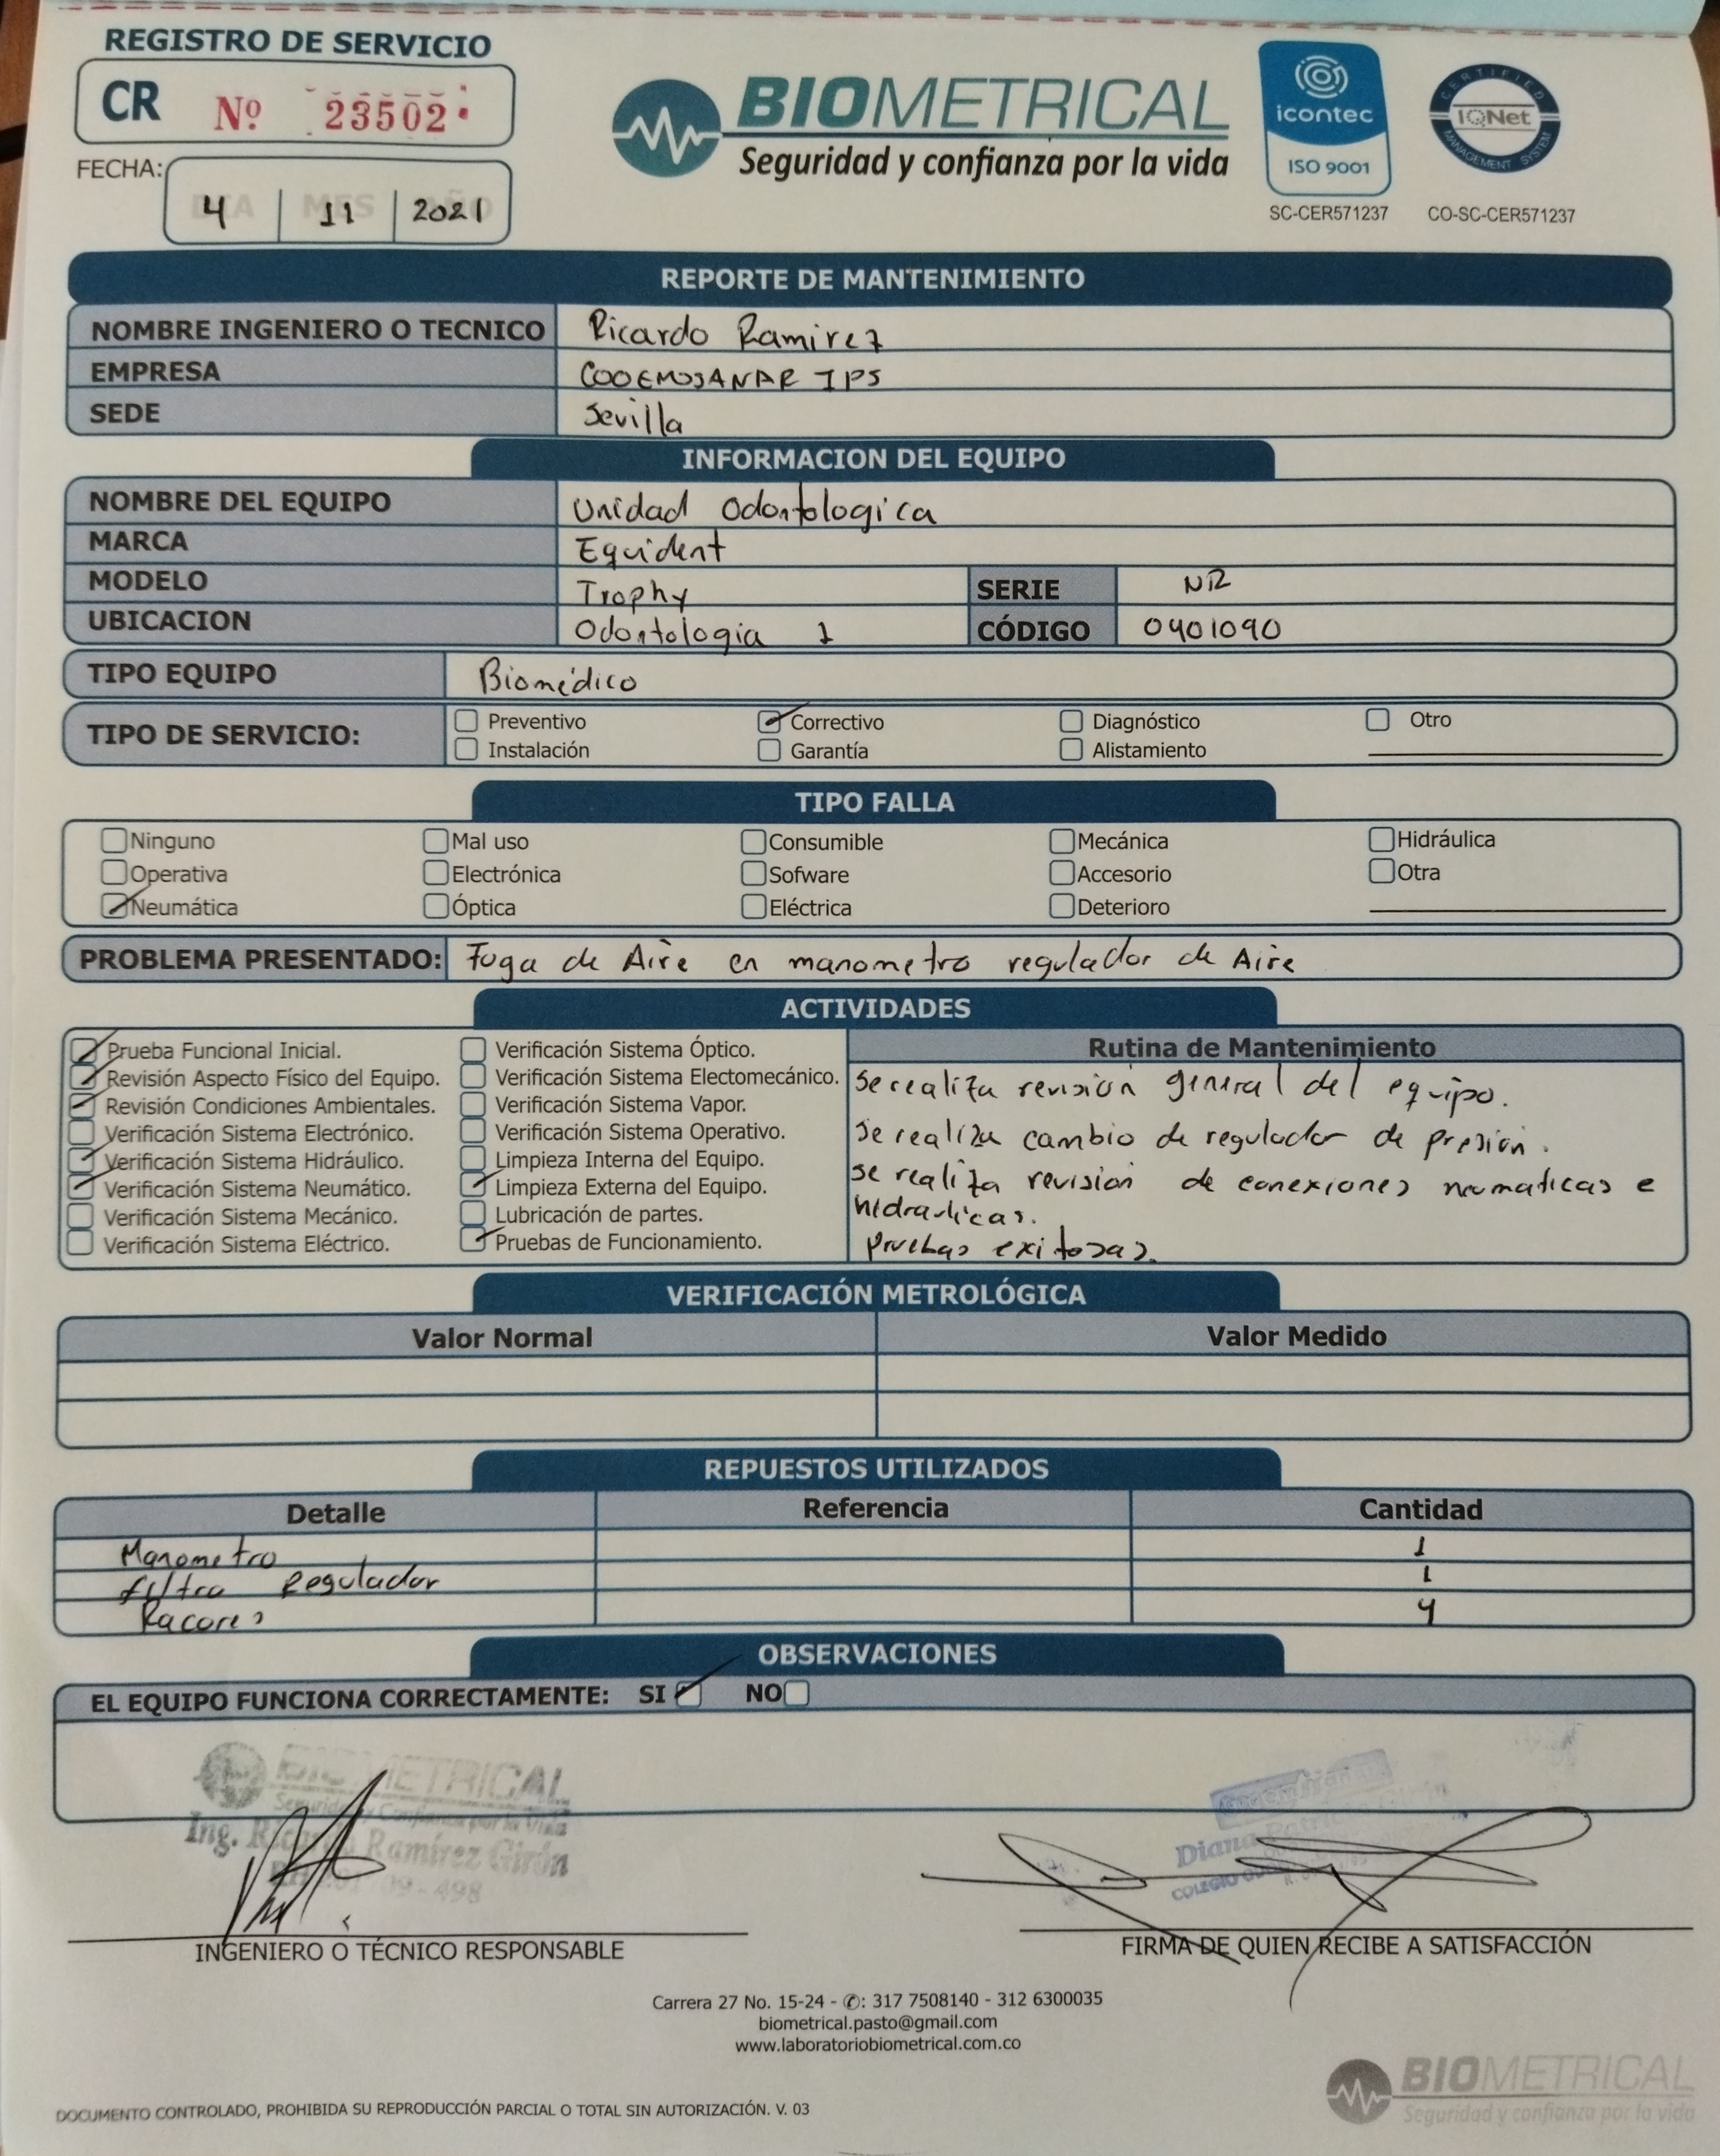 REGISTRO DE SERVICIO
CR Nº 23502
FECHA: DIA MES AÑO
4 11 2021
BIOMETRICAL
Seguridad y confianza por la vida
icontec
ISO 9001
SC-CER571237
CERTIFIED
IQNet
MANAGEMENT SYSTEM
CO-SC-CER571237
REPORTE DE MANTENIMIENTO
NOMBRE INGENIERO O TECNICO Ricardo Ramirez
EMPRESA CODEMOSANAR IPS
SEDE Sevilla
INFORMACION DEL EQUIPO
NOMBRE DEL EQUIPO Unidad Odontologica
MARCA Equident
MODELO Trophy SERIE NR
UBICACION Odontologia 1 CÓDIGO 0401090
TIPO EQUIPO Biomédico
TIPO DE SERVICIO: Preventivo Correctivo Diagnóstico Otro
Instalación Garantía Alistamiento
TIPO FALLA
Ninguno Mal uso Consumible Mecánica Hidráulica
Operativa Electrónica Sofware Accesorio Otra
Neumática Óptica Eléctrica Deterioro
PROBLEMA PRESENTADO: Fuga de Aire en manometro regulador de Aire
ACTIVIDADES
Prueba Funcional Inicial.
Revisión Aspecto Físico del Equipo.
Revisión Condiciones Ambientales.
Verificación Sistema Electrónico.
Verificación Sistema Hidráulico.
Verificación Sistema Neumático.
Verificación Sistema Mecánico.
Verificación Sistema Eléctrico.
Verificación Sistema Óptico.
Verificación Sistema Electomecánico.
Verificación Sistema Vapor.
Verificación Sistema Operativo.
Limpieza Interna del Equipo.
Limpieza Externa del Equipo.
Lubricación de partes.
Pruebas de Funcionamiento.
Rutina de Mantenimiento
Se realiza revisión general del equipo.
Se realiza cambio de regulador de presión.
Se realiza revision de conexiones neumaticas e
hidraulicas.
Pruebas exitosas.
VERIFICACIÓN METROLÓGICA
Valor Normal Valor Medido
REPUESTOS UTILIZADOS
Detalle Referencia Cantidad
Manometro 1
filtro Regulador 1
Racores 4
OBSERVACIONES
EL EQUIPO FUNCIONA CORRECTAMENTE: SI NO
BIOMETRICAL
Seguridad y Confianza por la Vida
Ing. Ricardo Ramírez Girón
Diana
COLEGIO
INGENIERO O TÉCNICO RESPONSABLE
FIRMA DE QUIEN RECIBE A SATISFACCIÓN
Carrera 27 No. 15-24 - ✆: 317 7508140 - 312 6300035
biometrical.pasto@gmail.com
www.laboratoriobiometrical.com.co
BIOMETRICAL
Seguridad y confianza por la vida
DOCUMENTO CONTROLADO, PROHIBIDA SU REPRODUCCIÓN PARCIAL O TOTAL SIN AUTORIZACIÓN. V. 03